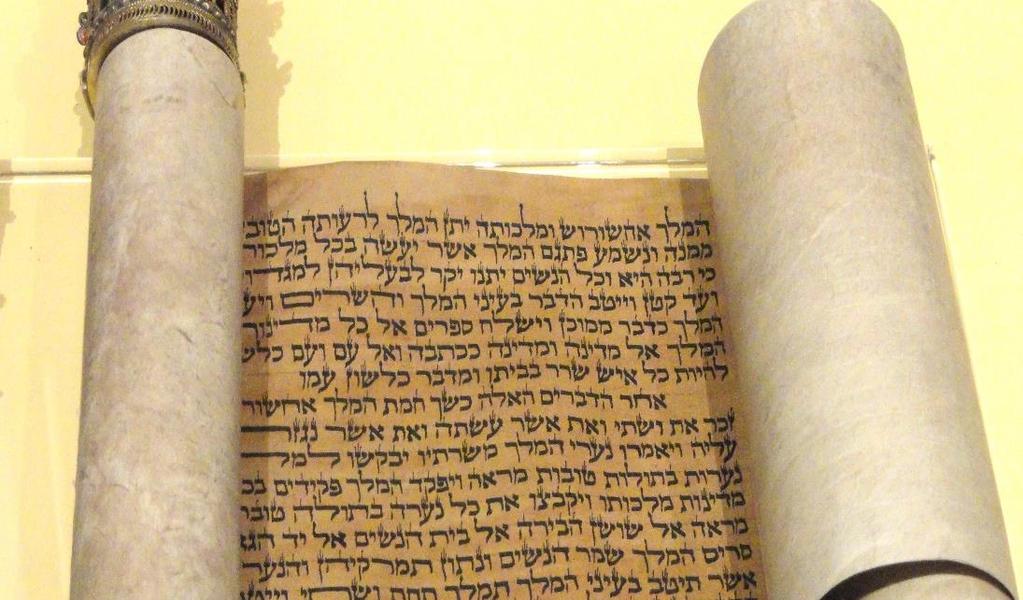 המלך אחשורוש ומלכותה יתן המלך לרעותה הטוב
ממנה ונשמע פתגם המלך אשר יעשה בכל מלכו
כי רבה היא וכל הנשים יתנו יקר לבעליהן למגדו
ועד קטן וייטב הדבר בעיני המלך והשרים ויע
המלך כדבר ממוכן וישלח ספרים אל כל מדינו
המלך אל מדינה ומדינה ככתבה ואל עם ועם כלש
להיות כל איש שרר בביתו ומדבר כלשון עמו
אחר הדברים האלה כשך חמת המלך אחשור
זכר את ושתי ואת אשר עשתה ואת אשר נגזר
עליה ויאמרו נערי המלך משרתיו יבקשו למל
נערות בתולות טובות מראה ויפקד המלך פקידים בכ
מדינות מלכותו ויקבצו את כל נערה בתולה טוב
מראה אל שושן הבירה אל בית הנשים אל יד הגא
סריס המלך שמר הנשים ונתון תמרקיהן והנער
אשר תיטב בעיני המלך תמלך תחת ושתי וייטב